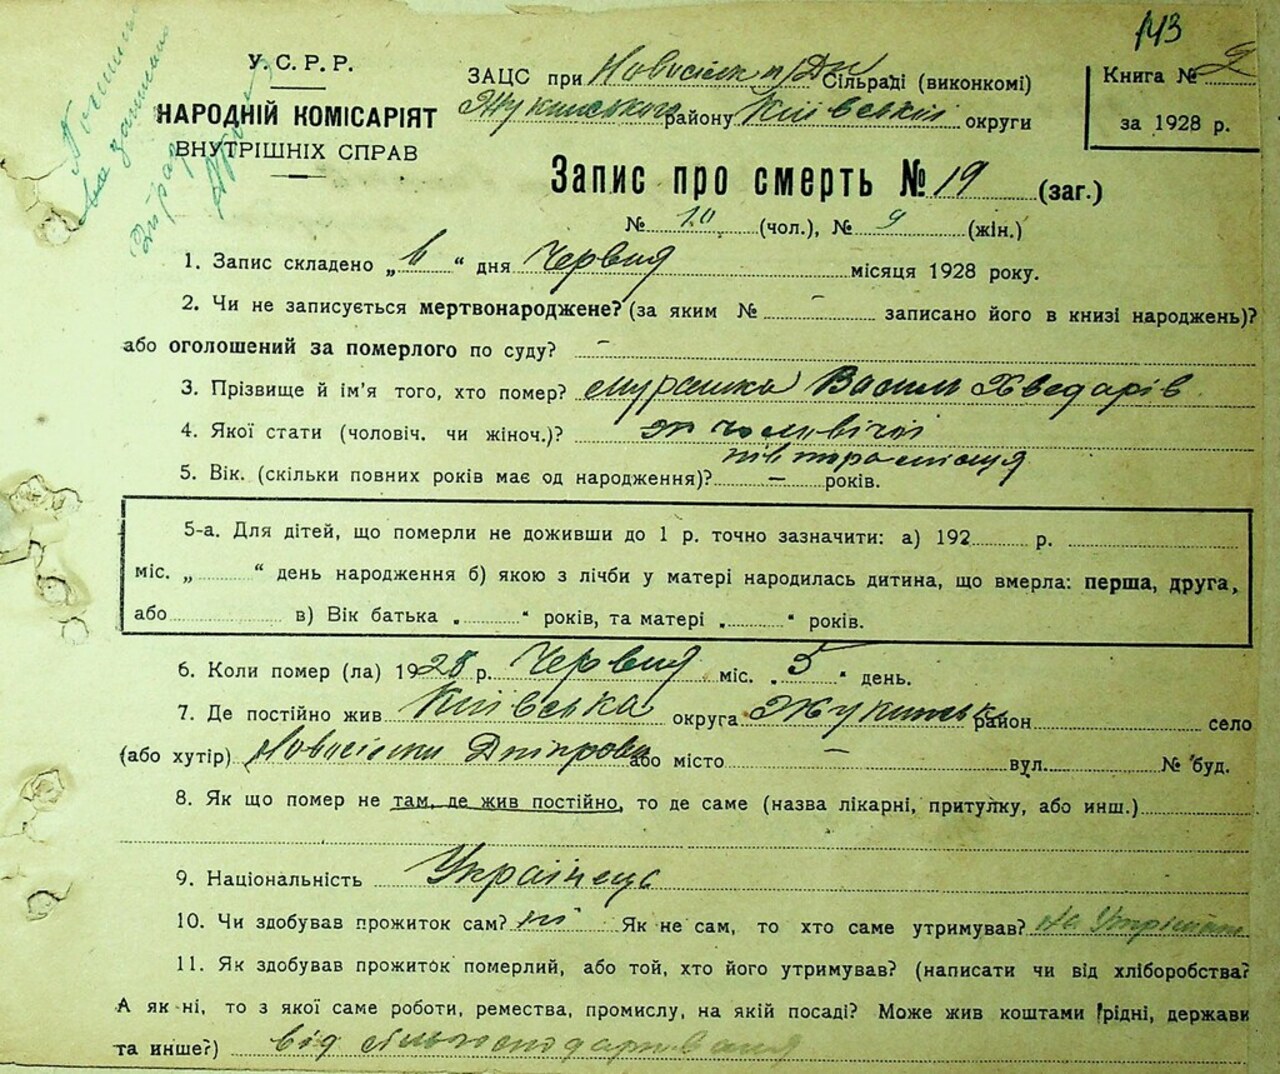 143
У.С.Р.Р.
НАРОДНІЙ КОМІСАРІЯТ
ВНУТРІШНІХ СПРАВ
ЗАЦС при Новосілк п/Дн Сільраді (виконкомі)
Жукинського району Київської округи
Книга № 2
за 1928 р.
Запис про смерть № 19 (заг.)
№ 10 (чол.), № 9 (жін.)
1. Запис складено „6“ дня Червня місяця 1928 року.
2. Чи не записується мертвонароджене? (за яким № - записано його в книзі народжень)?
або оголошений за померлого по суду? -
3. Прізвище й ім'я того, хто помер? Мурашка Васили Хведарів
4. Якої стати (чоловіч. чи жіноч.)? чоловічої
півтора місяця
5. Вік. (скільки повних років має од народження)? — років.
5-а. Для дітей, що померли не доживши до 1 р. точно зазначити: а) 192 р.
міс. „ “ день народження б) якою з лічби у матері народилась дитина, що вмерла: перша, друга,
або в) Вік батька „ “ років, та матері „ “ років.
6. Коли помер (ла) 1928 р. Червня міс. „5“ день.
7. Де постійно жив Київська округа Жукинськ район село
(або хутір) Новосілки Дніпрови або місто — вул. № буд.
8. Як що помер не там, де жив постійно, то де саме (назва лікарні, притулку, або инш.)
9. Національність Українець
10. Чи здобував прожиток сам? ні Як не сам, то хто саме утримував? на Утріман
11. Як здобував прожиток померлий, або той, хто його утримував? (написати чи від хліборобства?
А як ні, то з якої саме роботи, ремества, промислу, на якій посаді? Може жив коштами рідні, держави
та инше?) від сільгосподарювання